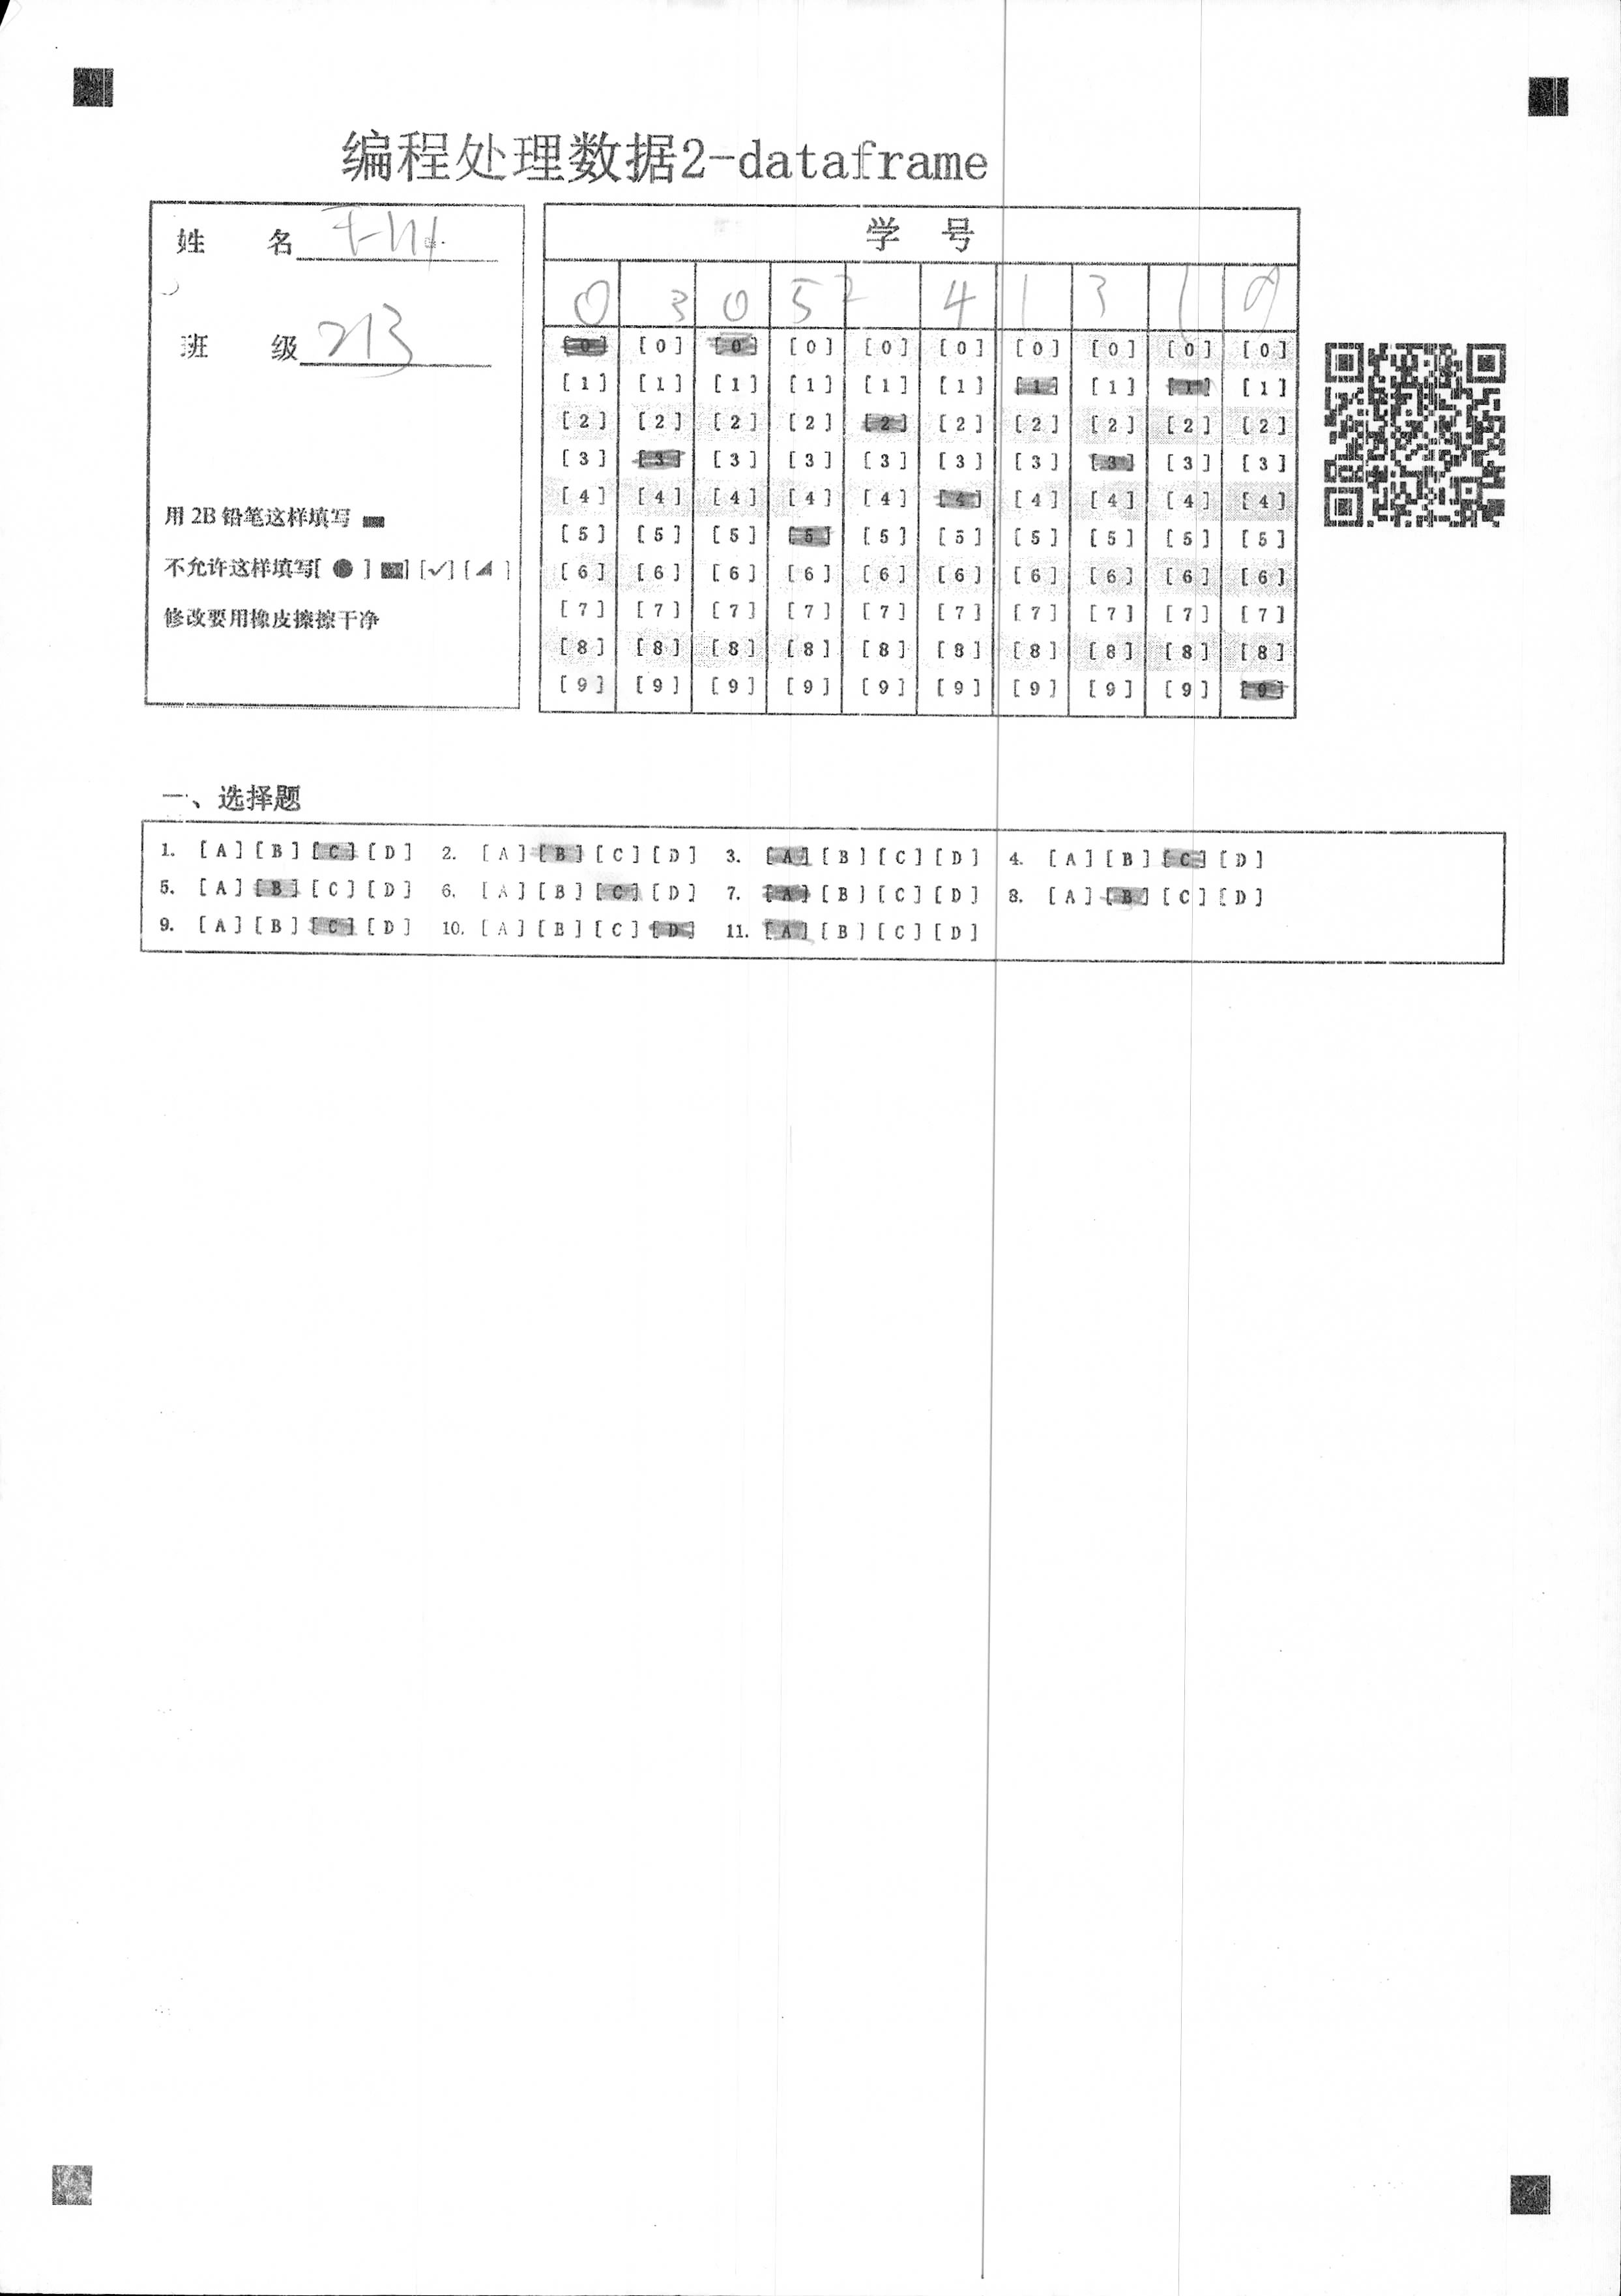 编程处理数据2-dataframe
姓 名
班 级 213
用 2B 铅笔这样填写
不允许这样填写[ ● ] [■] [✓] [◢ ]
修改要用橡皮擦擦干净
学 号
0 3 0 5 2 4 1 3 1 9
[0] [0] [0] [0] [0] [0] [0] [0] [0] [0]
[1] [1] [1] [1] [1] [1] [1] [1] [1] [1]
[2] [2] [2] [2] [2] [2] [2] [2] [2] [2]
[3] [3] [3] [3] [3] [3] [3] [3] [3] [3]
[4] [4] [4] [4] [4] [4] [4] [4] [4] [4]
[5] [5] [5] [5] [5] [5] [5] [5] [5] [5]
[6] [6] [6] [6] [6] [6] [6] [6] [6] [6]
[7] [7] [7] [7] [7] [7] [7] [7] [7] [7]
[8] [8] [8] [8] [8] [8] [8] [8] [8] [8]
[9] [9] [9] [9] [9] [9] [9] [9] [9] [9]
一、选择题
1. [A] [B] [C] [D] 2. [A] [B] [C] [D] 3. [A] [B] [C] [D] 4. [A] [B] [C] [D]
5. [A] [B] [C] [D] 6. [A] [B] [C] [D] 7. [A] [B] [C] [D] 8. [A] [B] [C] [D]
9. [A] [B] [C] [D] 10. [A] [B] [C] [D] 11. [A] [B] [C] [D]